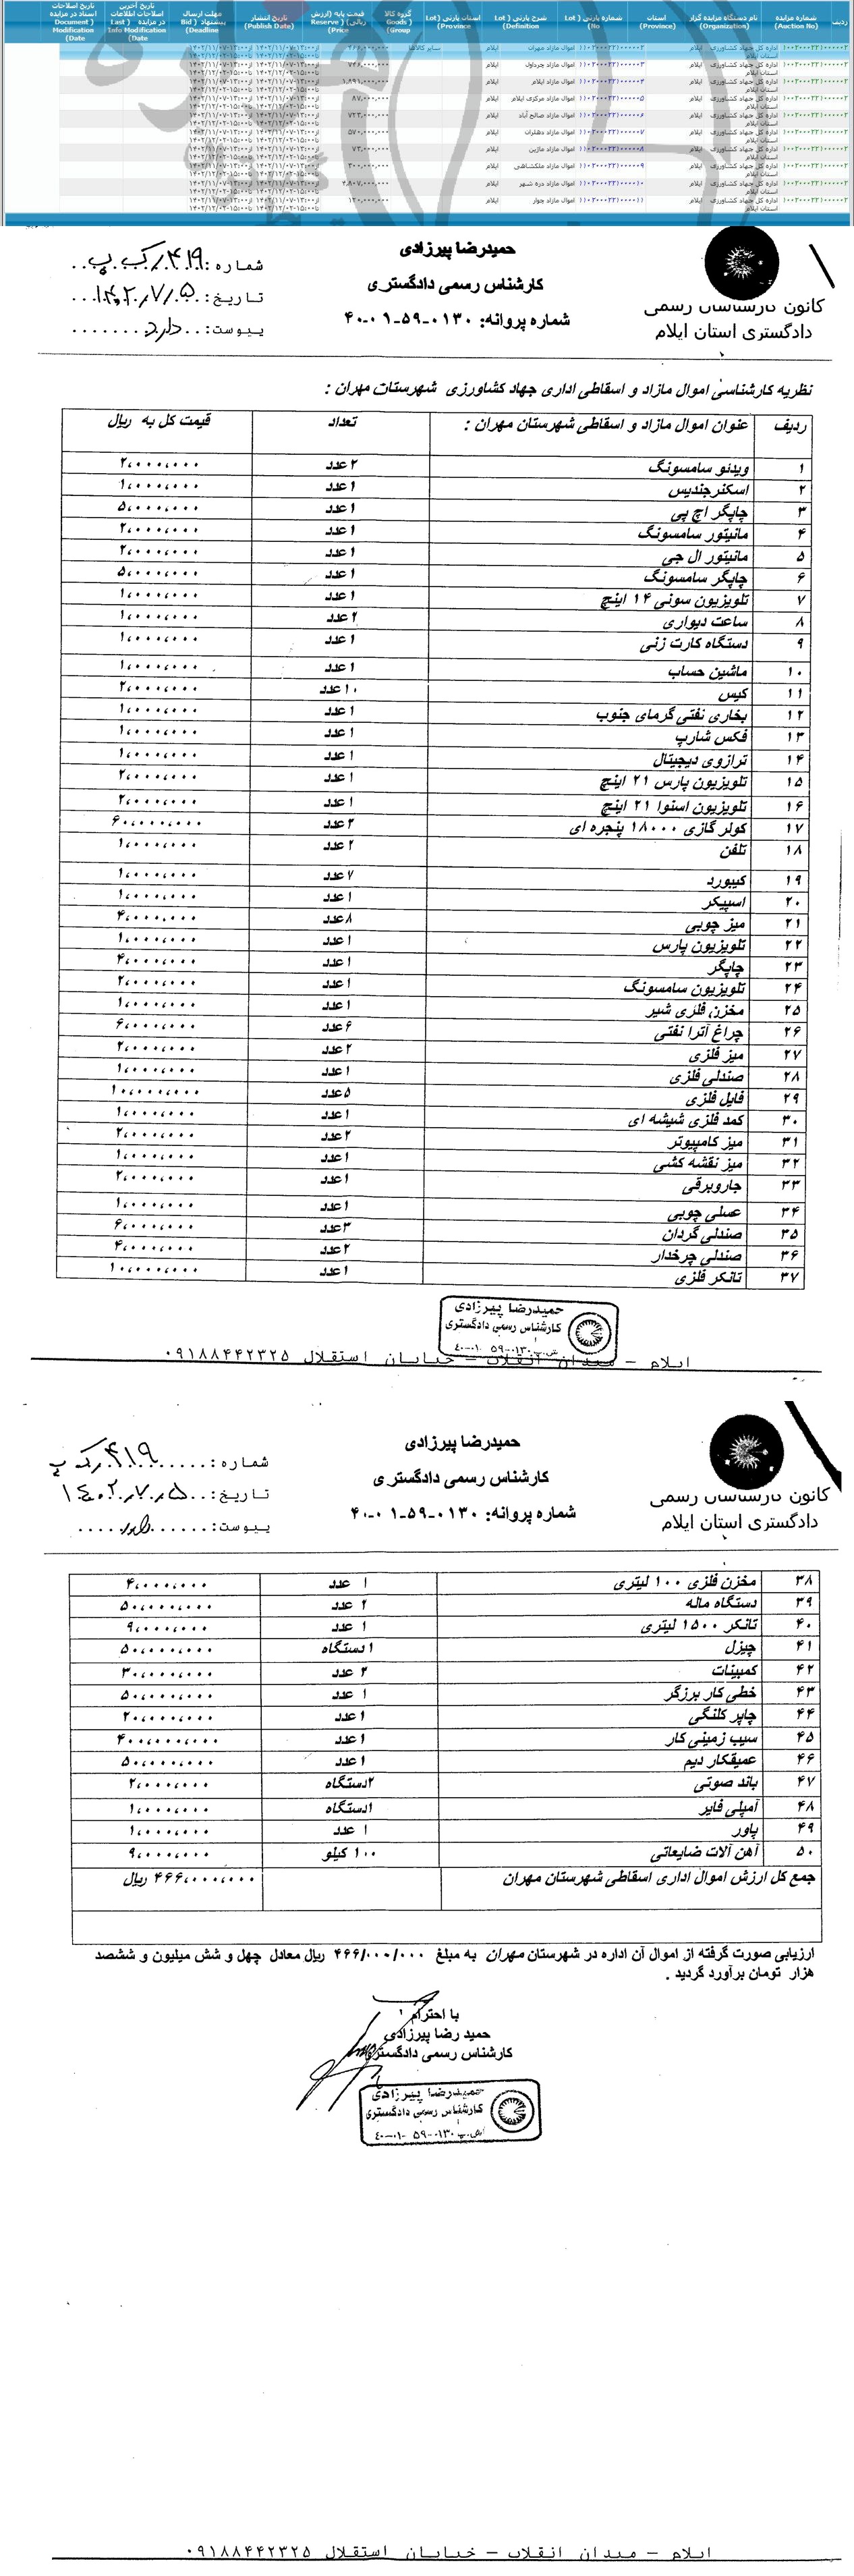 ردیف شماره مزایده (Auction No) نام دستگاه مزایده گزار (Organization) استان (Province) شماره پارتی (Lot No) شرح پارتی (Lot Definition) استان پارتی (Lot Province) گروه کالا (Goods Group) قیمت پایه (ارزش ریالی) (Reserve Price) تاریخ انتشار (Publish Date) مهلت ارسال پیشنهاد (Bid Deadline) تاریخ آخرین اصلاحات اطلاعات در مزایده (Last Info Modification Date) تاریخ اصلاحات اسناد در مزایده (Document Modification Date)
اداره کل جهاد کشاورزی استان ایلام ایلام اموال مازاد مهران ایلام سایر کالاها ۴۶۶,۰۰۰,۰۰۰
اداره کل جهاد کشاورزی استان ایلام ایلام اموال مازاد چرداول ایلام
اداره کل جهاد کشاورزی استان ایلام ایلام اموال مازاد ایلام ایلام
اداره کل جهاد کشاورزی استان ایلام ایلام اموال مازاد مرکزی ایلام ایلام ۸۷,۰۰۰,۰۰۰
اداره کل جهاد کشاورزی استان ایلام ایلام اموال مازاد صالح آباد ایلام
اداره کل جهاد کشاورزی استان ایلام ایلام اموال مازاد دهلران ایلام ۵۷۰,۰۰۰,۰۰۰
اداره کل جهاد کشاورزی استان ایلام ایلام اموال مازاد ماژین ایلام
اداره کل جهاد کشاورزی استان ایلام ایلام اموال مازاد ملکشاهی ایلام ۳۰۰,۰۰۰,۰۰۰
اداره کل جهاد کشاورزی استان ایلام ایلام اموال مازاد دره شهر ایلام
اداره کل جهاد کشاورزی استان ایلام ایلام اموال مازاد چوار ایلام ۱۲۰,۰۰۰,۰۰۰
کانون کارشناسان رسمی
دادگستری استان ایلام
حمیدرضا پیرزادی
کارشناس رسمی دادگستری
شماره پروانه: ۰۱۳۰-۵۹-۰۱-۴۰
شماره: ۴۱۹/ک.پ
تاریخ: ۱۴۰۲/۷/۵
پیوست: دارد
نظریه کارشناسی اموال مازاد و اسقاطی اداری جهاد کشاورزی شهرستان مهران :
ردیف عنوان اموال مازاد و اسقاطی شهرستان مهران : تعداد قیمت کل به ریال
۱ ویدئو سامسونگ ۲ عدد ۲،۰۰۰،۰۰۰
۲ اسکنر جندیس ۱ عدد ۱،۰۰۰،۰۰۰
۳ چاپگر اچ پی ۱ عدد ۵،۰۰۰،۰۰۰
۴ مانیتور سامسونگ ۱ عدد ۲،۰۰۰،۰۰۰
۵ مانیتور ال جی ۱ عدد ۲،۰۰۰،۰۰۰
۶ چاپگر سامسونگ ۱ عدد ۵،۰۰۰،۰۰۰
۷ تلویزیون سونی ۱۴ اینچ ۱ عدد ۱،۰۰۰،۰۰۰
۸ ساعت دیواری ۲ عدد ۱،۰۰۰،۰۰۰
۹ دستگاه کارت زنی ۱ عدد ۱،۰۰۰،۰۰۰
۱۰ ماشین حساب ۱ عدد ۱،۰۰۰،۰۰۰
۱۱ کیس ۱۰ عدد ۲،۰۰۰،۰۰۰
۱۲ بخاری نفتی گرمای جنوب ۱ عدد ۱،۰۰۰،۰۰۰
۱۳ فکس شارپ ۱ عدد ۱،۰۰۰،۰۰۰
۱۴ ترازوی دیجیتال ۱ عدد ۱،۰۰۰،۰۰۰
۱۵ تلویزیون پارس ۲۱ اینچ ۱ عدد ۲،۰۰۰،۰۰۰
۱۶ تلویزیون اسنوا ۲۱ اینچ ۱ عدد ۲،۰۰۰،۰۰۰
۱۷ کولر گازی ۱۸۰۰۰ پنجره ای ۳ عدد ۶۰،۰۰۰،۰۰۰
۱۸ تلفن ۲ عدد ۱،۰۰۰،۰۰۰
۱۹ کیبورد ۷ عدد ۱،۰۰۰،۰۰۰
۲۰ اسپیکر ۱ عدد ۱،۰۰۰،۰۰۰
۲۱ میز چوبی ۸ عدد ۴،۰۰۰،۰۰۰
۲۲ تلویزیون پارس ۱ عدد ۱،۰۰۰،۰۰۰
۲۳ چاپگر ۱ عدد ۴،۰۰۰،۰۰۰
۲۴ تلویزیون سامسونگ ۱ عدد ۲،۰۰۰،۰۰۰
۲۵ مخزن فلزی شیر ۱ عدد ۱،۰۰۰،۰۰۰
۲۶ چراغ آترا نفتی ۶ عدد ۶،۰۰۰،۰۰۰
۲۷ میز فلزی ۲ عدد ۲،۰۰۰،۰۰۰
۲۸ صندلی فلزی ۱ عدد ۱،۰۰۰،۰۰۰
۲۹ فایل فلزی ۵ عدد ۱۰،۰۰۰،۰۰۰
۳۰ کمد فلزی شیشه ای ۱ عدد ۱،۰۰۰،۰۰۰
۳۱ میز کامپیوتر ۲ عدد ۲،۰۰۰،۰۰۰
۳۲ میز نقشه کشی ۱ عدد ۱،۰۰۰،۰۰۰
۳۳ جاروبرقی ۱ عدد ۲،۰۰۰،۰۰۰
۳۴ عسلی چوبی ۱ عدد ۱،۰۰۰،۰۰۰
۳۵ صندلی گردان ۳ عدد ۶،۰۰۰،۰۰۰
۳۶ صندلی چرخدار ۲ عدد ۴،۰۰۰،۰۰۰
۳۷ تانکر فلزی ۱ عدد ۱۰،۰۰۰،۰۰۰
حمیدرضا پیرزادی
کارشناس رسمی دادگستری
ش.پ ۰۱۳۰-۵۹-۰۱-۴۰
ایلام - میدان انقلاب - خیابان استقلال ۰۹۱۸۸۴۴۲۳۲۵
کانون کارشناسان رسمی
دادگستری استان ایلام
حمیدرضا پیرزادی
کارشناس رسمی دادگستری
شماره پروانه: ۰۱۳۰-۵۹-۰۱-۴۰
شماره: ۴۱۹/ک پ
تاریخ: ۱۴۰۲/۷/۵
پیوست: دارد
۳۸ مخزن فلزی ۱۰۰ لیتری ۱ عدد ۴،۰۰۰،۰۰۰
۳۹ دستگاه ماله ۲ عدد ۵۰،۰۰۰،۰۰۰
۴۰ تانکر ۱۵۰۰ لیتری ۱ عدد ۹،۰۰۰،۰۰۰
۴۱ چیزل ۱ دستگاه ۵۰،۰۰۰،۰۰۰
۴۲ کمبینات ۲ عدد ۳۰،۰۰۰،۰۰۰
۴۳ خطی کار برزگر ۱ عدد ۵۰،۰۰۰،۰۰۰
۴۴ چاپر کلنگی ۱ عدد ۲۰،۰۰۰،۰۰۰
۴۵ سیب زمینی کار ۱ عدد ۴۰،۰۰۰،۰۰۰
۴۶ عمیقکار دیم ۱ عدد ۵۰،۰۰۰،۰۰۰
۴۷ باند صوتی ۲ دستگاه ۲،۰۰۰،۰۰۰
۴۸ آمپلی فایر ۱ دستگاه ۱،۰۰۰،۰۰۰
۴۹ پاور ۱ عدد ۱،۰۰۰،۰۰۰
۵۰ آهن آلات ضایعاتی ۱۰۰ کیلو ۹،۰۰۰،۰۰۰
جمع کل ارزش اموال اداری اسقاطی شهرستان مهران ۴۶۶،۰۰۰،۰۰۰ ریال
ارزیابی صورت گرفته از اموال آن اداره در شهرستان مهران به مبلغ ۴۶۶/۰۰۰/۰۰۰ ریال معادل چهل و شش میلیون و ششصد
هزار تومان برآورد گردید .
با احترام
حمید رضا پیرزادی
کارشناس رسمی دادگستری
حمیدرضا پیرزادی
کارشناس رسمی دادگستری
ش.پ ۰۱۳۰-۵۹-۰۱-۴۰
ایلام - میدان انقلاب - خیابان استقلال ۰۹۱۸۸۴۴۲۳۲۵